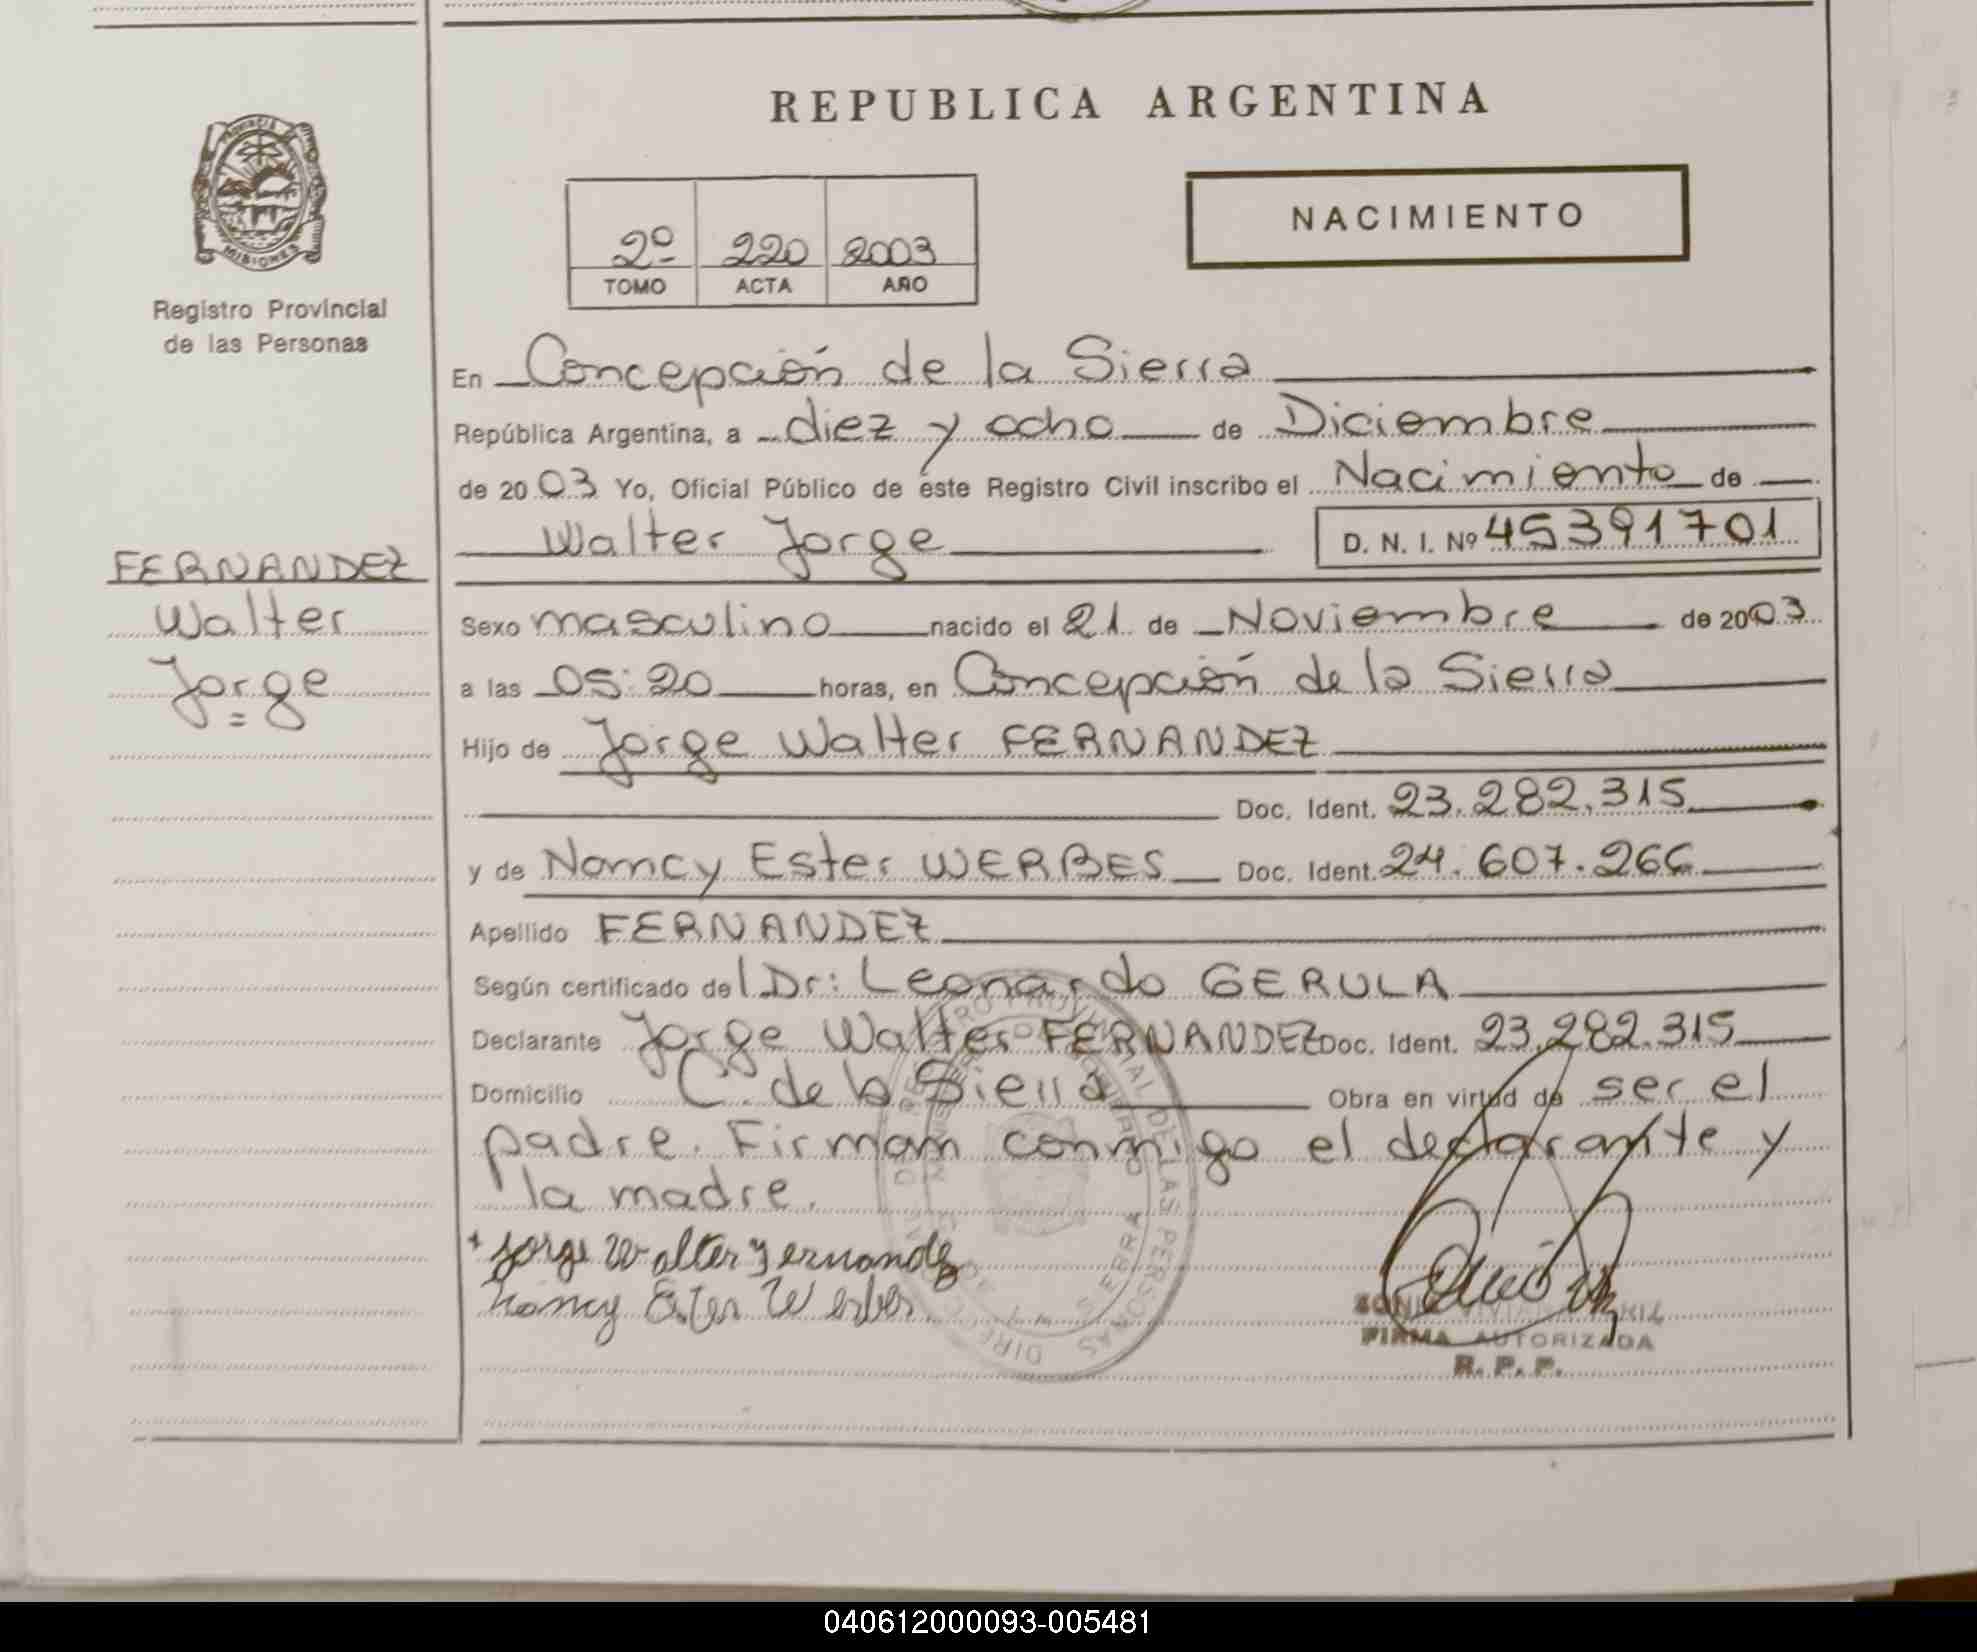 REPUBLICA ARGENTINA
PROVINCIA
MISIONES
Registro Provincial
de las Personas
2º 220 2003
TOMO ACTA AÑO
NACIMIENTO
FERNANDEZ
Walter
Jorge
En Concepción de la Sierra
República Argentina, a diez y ocho de Diciembre
de 2003 Yo, Oficial Público de este Registro Civil inscribo el Nacimiento de
Walter Jorge D. N. I. Nº 45391701
Sexo masculino nacido el 21 de Noviembre de 2003
a las 05:20 horas, en Concepción de la Sierra
Hijo de Jorge Walter FERNANDEZ
Doc. Ident. 23.282.315
y de Nancy Ester WERBES Doc. Ident. 24.607.266
Apellido FERNANDEZ
Según certificado del Dr: Leonardo GERULA
Declarante Jorge Walter FERNANDEZ Doc. Ident. 23.282.315
Domicilio C. de la Sierra Obra en virtud de ser el
padre. Firman conmigo el declarante y
la madre.
+ Jorge Walter Fernandez
Nancy Ester Werbes
FIRMA AUTORIZADA
R. P. P.
040612000093-005481